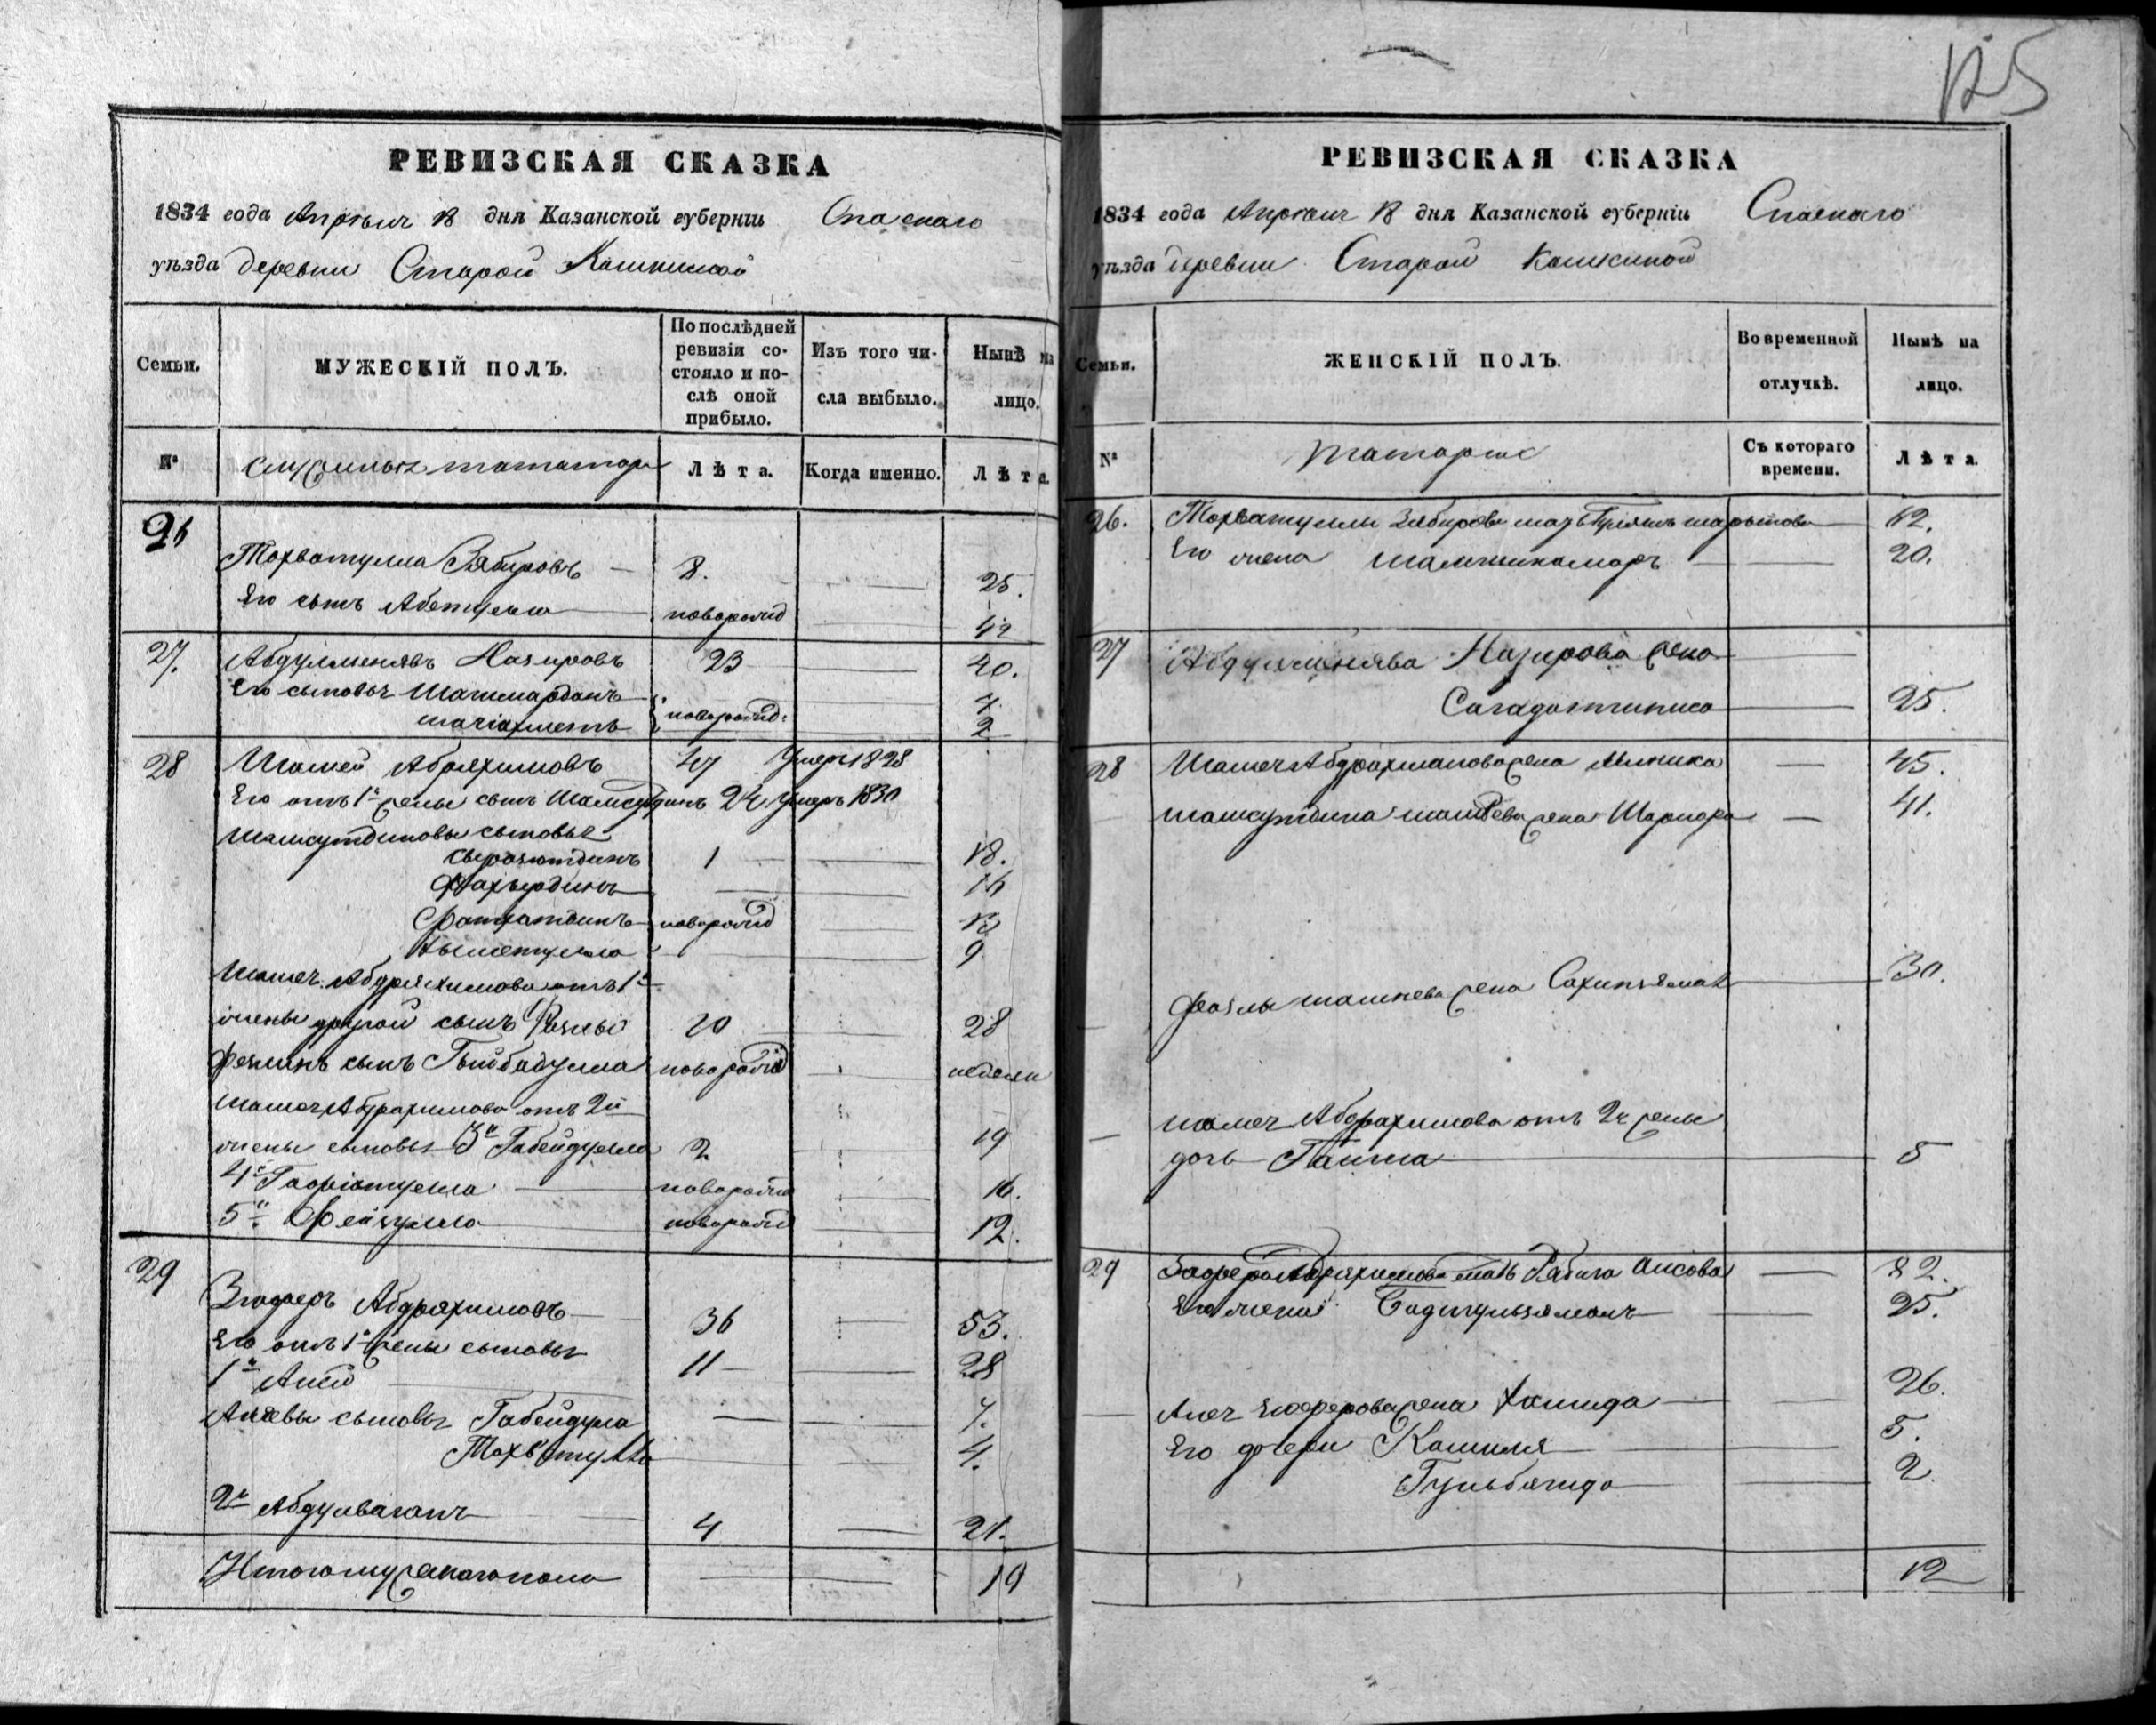 125
РЕВИЗСКАЯ СКАЗКА
1834 года Апреля 18 дня Казанской губерніи Спаскаго
уѣзда деревни Старой Камкиной
Семьи.
МУЖЕСКІЙ ПОЛЪ.
По послѣдней ревизіи со-
стояло и по-
слѣ оной
прибыло.
Изъ того чи-
сла выбыло.
Нынѣ на
лицо.
№
татар
Лѣта.
Когда именно.
Лѣта.
26
Тохватулла Зябировъ 8. 25.
Его сынъ Абетулла новорожд
27. Абдулменявъ Назировъ 23 40.
Его сыновья Шагимарданъ 7.
шагіахметъ новорожд: 2
28 Шамей Абдряхимовъ 47 Умеръ 1828
Его отъ 1й жены сынъ Шамсутдинъ 24 Умеръ 1830
Шамсутдиновы сыновья
Сыразютдинъ 1 18.
Фахрутдинъ 16
новорожд 13
9
Шамея Абдряхимова отъ 1й
жены другой сынъ Фазлы 10 28
сынъ Гыйбадулла новорожд недели
Шамея Абдрахимова отъ 2й
жены сыновья 3й Габейдулла 2 19
4й новорожд 16.
5й Фейзулла новорожд 12.
29
Зюферъ Абдряхимовъ 36 53.
Его отъ 1й жены сыновья
1й Апсей 11 28
сыновья Габейдулла 7.
Тохватулла 4.
2й Абдулваганъ 4 21.
Итого мужескаго пола 19
РЕВИЗСКАЯ СКАЗКА
1834 года Апреля 18 дня Казанской губерніи Спаскаго
уѣзда деревни Старой Камкиной
Семьи.
ЖЕНСКІЙ ПОЛЪ.
Во временной
отлучкѣ.
Нынѣ на
лицо.
№
татарис
Съ котораго
времени.
Лѣта.
26. Тохватуллы Зябирова мать 62.
Его жена Шамсикамаръ 20.
27 Абдулменява Назирова жена
25.
28 Шамея Абдрахманова жена 45.
шамсутдина шамеева жена 41.
Фазлы шамеева жена 30.
шамея Абдрахимова отъ 2й жены
дочь 5
29 Зюфера Абдряхимова мать Рабига 82.
Его жена Бадигульзяманъ 25.
зюферова жена Хамида 26.
Его дочери Камиля 5.
2.
12